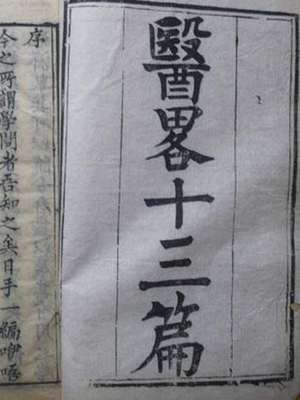 醫畧十三篇
序
今之所謂學問者吾知之矣日手一編咿唔